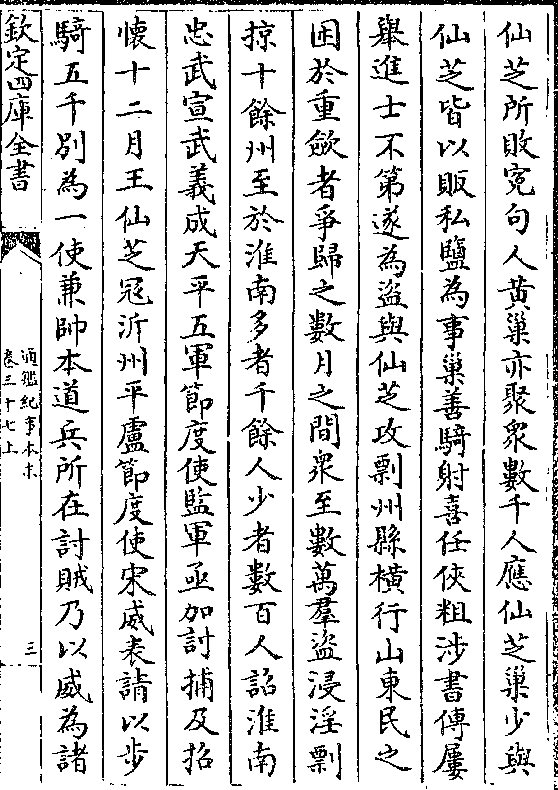 仙芝所敗寃句人黄巢亦聚衆數千人應仙芝巢少與
仙芝皆以販私鹽為事巢善騎射喜任俠粗涉書傳屢
舉進士不第遂為盗與仙芝攻剽州縣横行山東民之
困於重斂者爭歸之數月之間衆至數萬羣盜浸淫剽
掠十餘州至於淮南多者千餘人少者數百人詔淮南
忠武宣武義成天平五軍節度使監軍亟加討捕及招
懷十二月王仙芝寇沂州平盧節度使宋威表請以步
騎五千別為一使兼帥本道兵所在討賊乃以威為諸
欽定四庫全書
通鑑紀事本末
卷三十七上
三